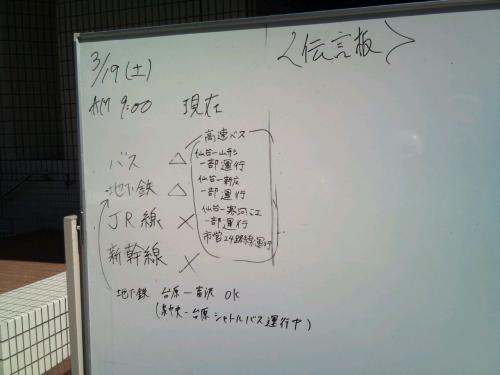 <伝言板>
3/19(土)
AM 9:00 現在
バス △
地下鉄 △
JR線 ×
新幹線 ×
高速バス
仙台ー山形
一部運行
仙台ー新庄
一部運行
仙台ー寒河江
一部運行
市営24路線運行
地下鉄 台原ー富沢 OK
(泉中央ー台原 シャトルバス運行中)